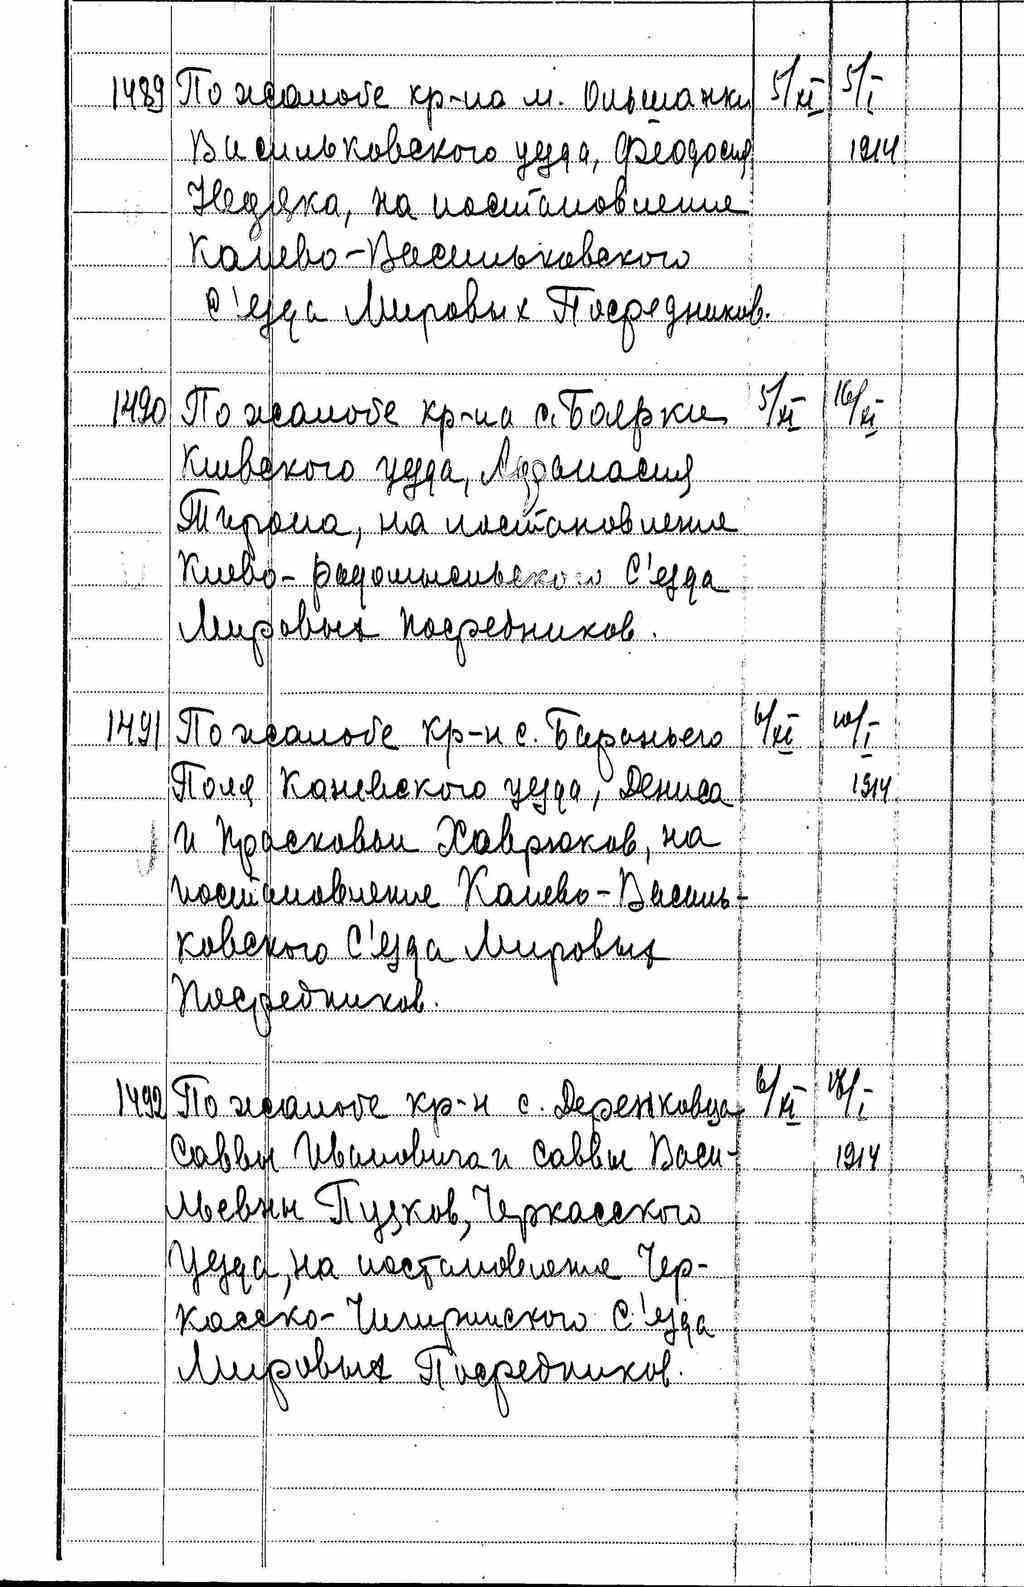 1489 По жалобе кр-на м. Ольшанки 5/XI 5/I
Васильковского уезда, Феодосия 1914
на постановление
Канево-Васильковского
С'езда Мировых Посредников.
1490 По жалобе кр-на с. Боярки 5/XI 16/XI
Киевского уезда, Афанасия
на постановление
Киево-радомысльского С'езда
Мировых посредников.
1491 По жалобе кр-н с. Бараньего 6/XI 10/I
Поля Каневского уезда, Дениса 1914
и Прасковьи Хаврюков, на
постановление Канево-Василь-
ковского С'езда Мировых
Посредников.
1492 По жалобе кр-н с. Деренковца 6/XI /I
Саввы Ивановича и Саввы Васи- 1914
льевны Пузков, Черкасского
Уезда, на постановление Чер-
касско-Чигиринского С'езда
Мировых Посредников.